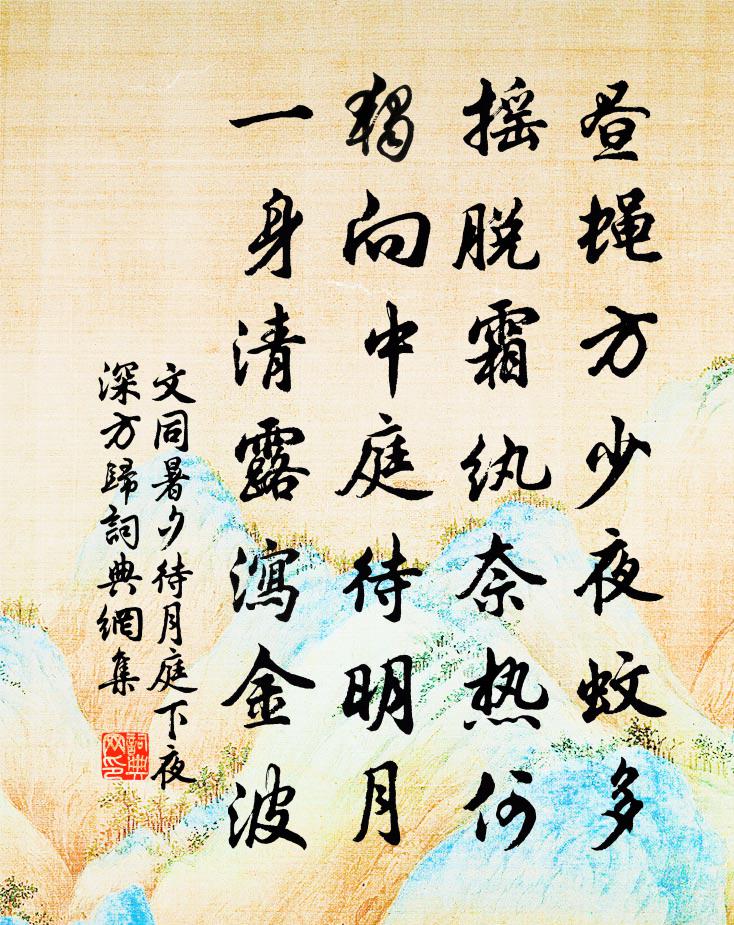 昼蝇方少夜蚊多
摇脱霜纨奈热何
独向中庭待明月
一身清露瀉金波
文同暑夕待月庭下夜
深方歸詞典網集
詞典
网印